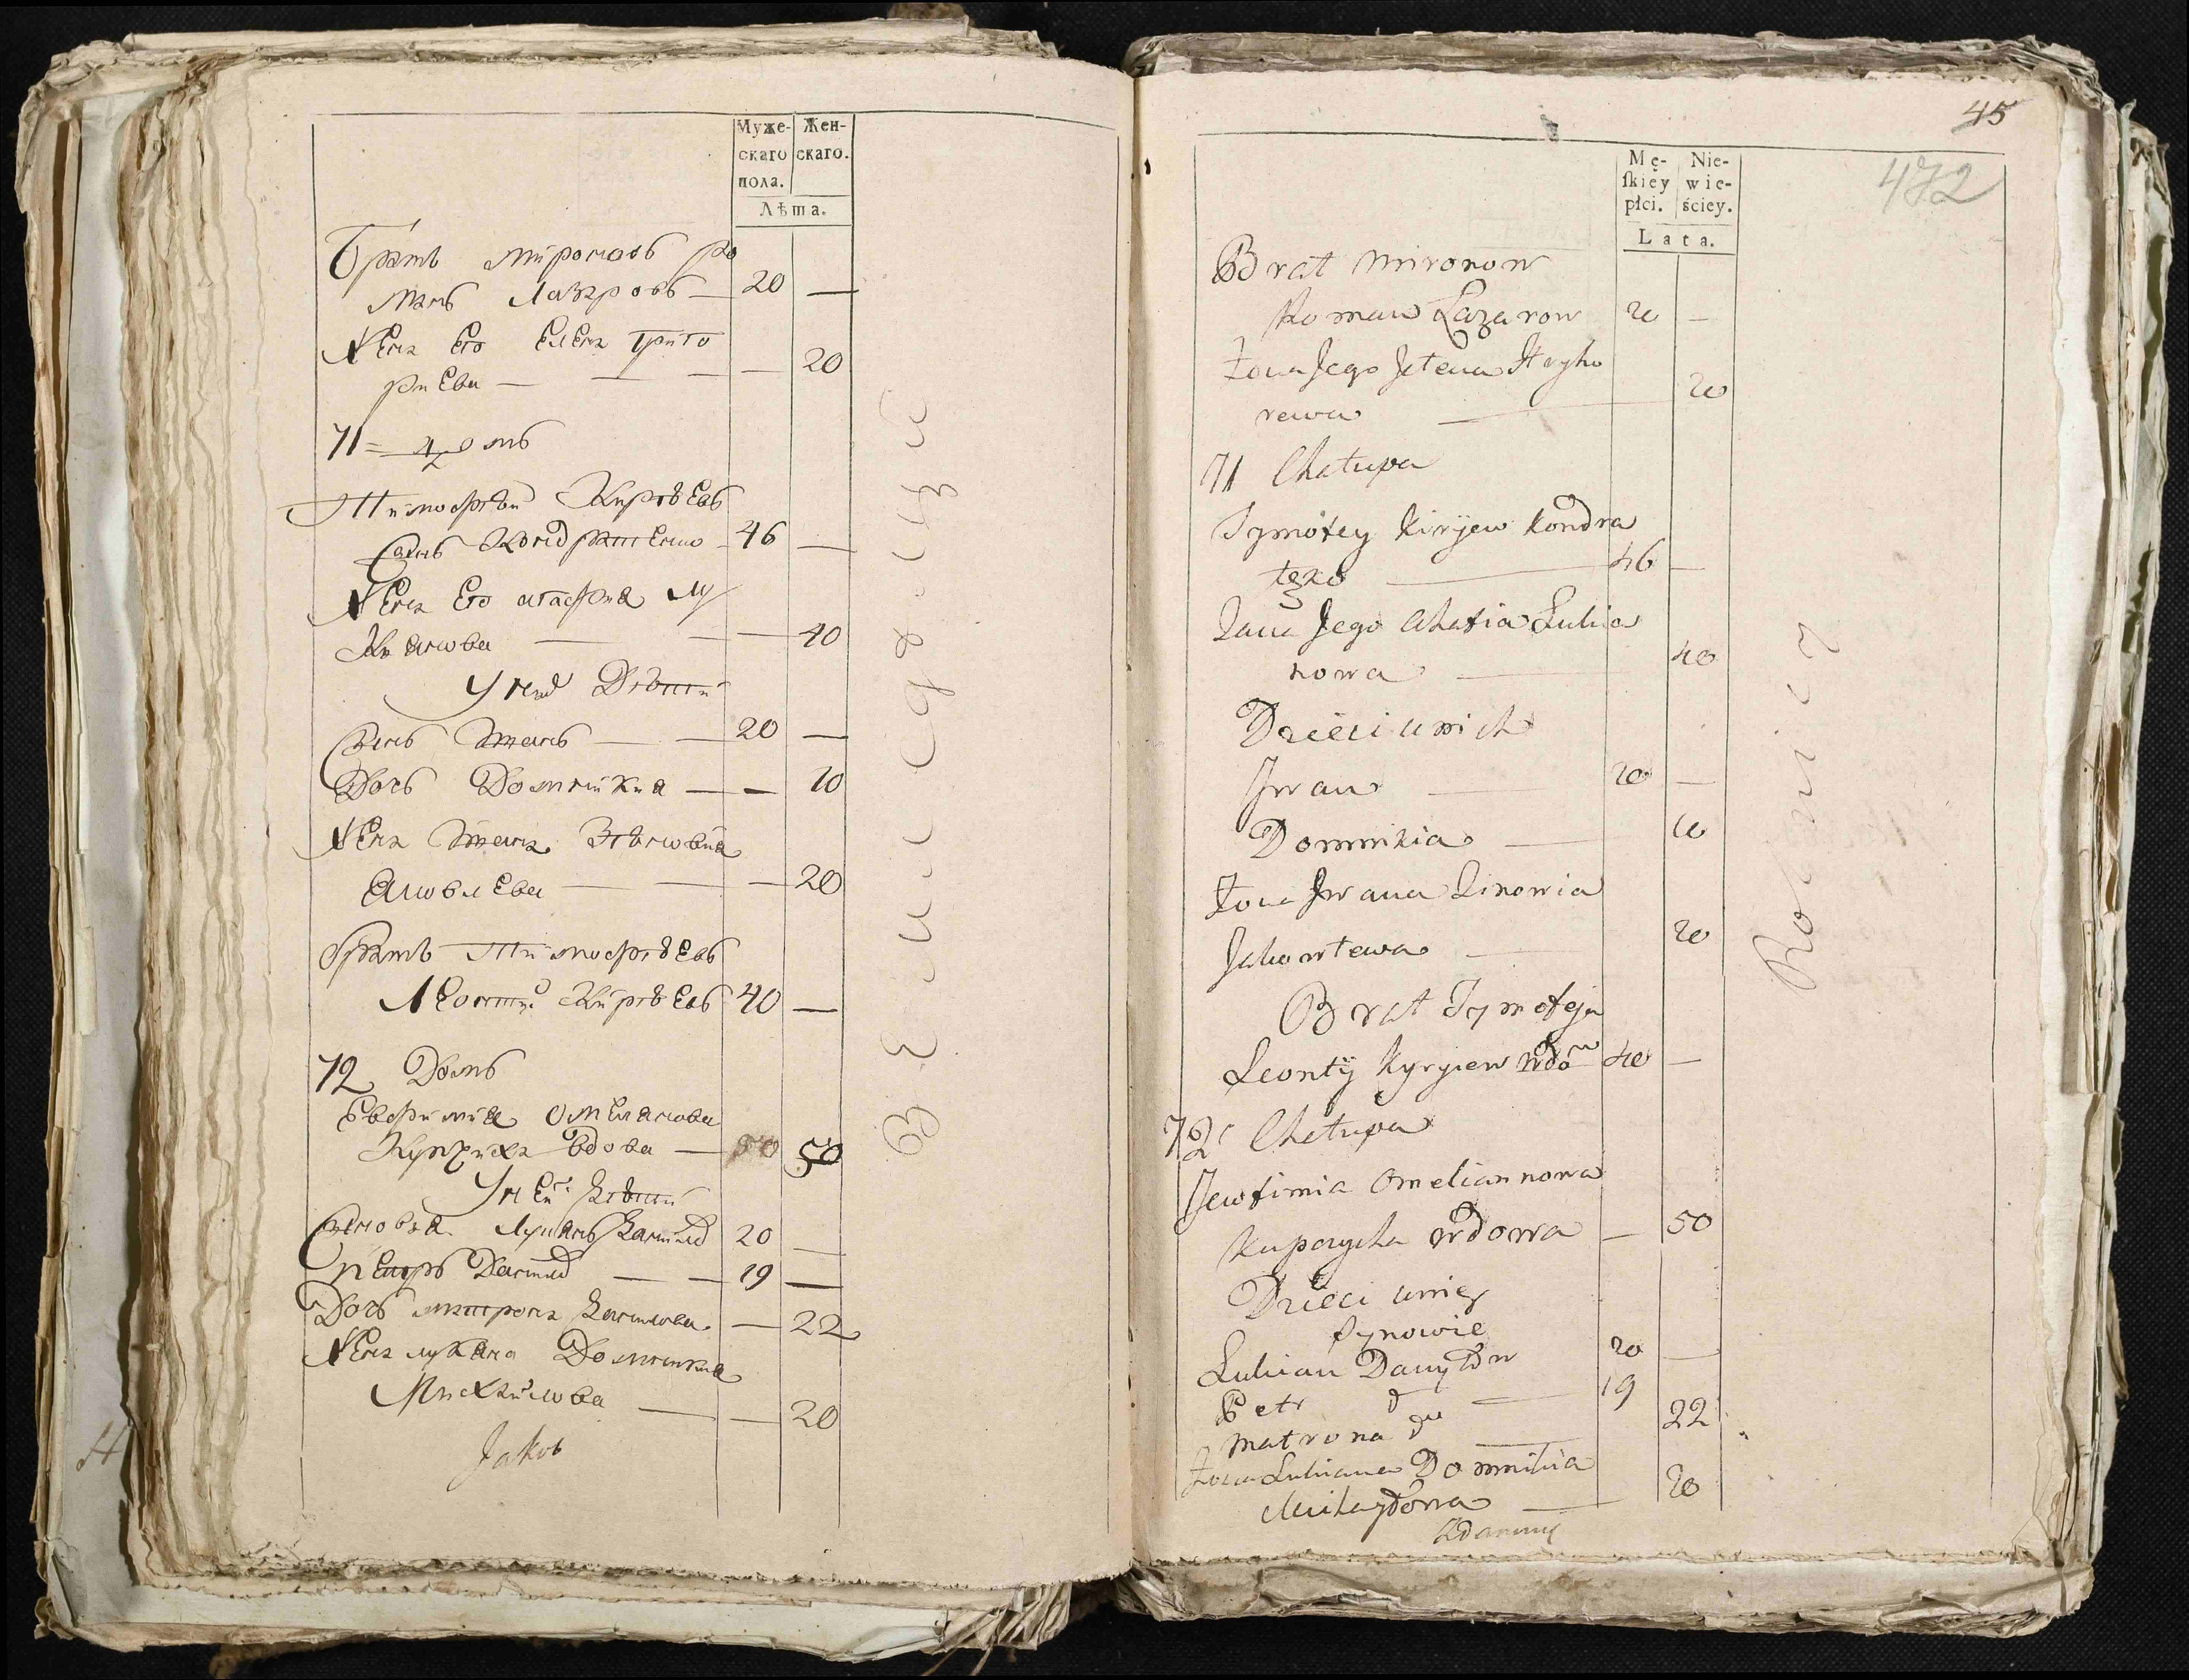 Муже-
скаго
пола.
Жен-
скаго.
Лѣта.
Братъ Мироновъ Ро
манъ Лазаровъ — 20 —
Жена Его Елена Григо
риева — — — — 20
71 = Домъ
Тимофѣй Кирѣевъ
Сынъ Кондратенко 46 —
Жена Его Агафия Лу
киянова — — — 40
У нихъ Дѣти
Сынъ Иванъ — — 20 —
Дочь Домникия — — 10
Жена Ивана Зѣновия
Яковлева — — — 20
Братъ Тимофѣевъ
Леонтий Кирѣевъ 40 —
72 Домъ
Евфимия Омелянова
вдова — 50 50
У неи Дѣти
Сыновья Лукянъ Данилов 20 —
Петръ Данилов — — 19 —
Дочь Матрона Данилова — 22
Жена Лукяна Домникия
Михайлова — — 20
Jakob
В Единс
45
472
Mę-
ſkiey
płci.
Nie-
wie-
ściey.
Lata.
Brat Mironow
Roman Łazarow 20 —
Żona Jego Jelena Hryho
rewa — 20
71 Chałupa
Tymofey Kiryjew Kondra
tezko — 46 —
Żona Jego Ahafia Łukia
nowa — 40
Dzieci u nich
Jwan — 20 —
Domnikia — 10
Żona Jwana Zinowia
Jakowlewa — 20
Brat Tymofeja
Leontÿ Kyryiew wdow 40 —
72 Chałupa
Jewfimia Omeliannowa
wdowa — 50
Dzieci u niey
Synowie
Łukian Danyłow 20 —
Petr d — 19
Matrona d — 22
Żona Łukiana Domnikia
Michayłowa — 20
Rolnicy